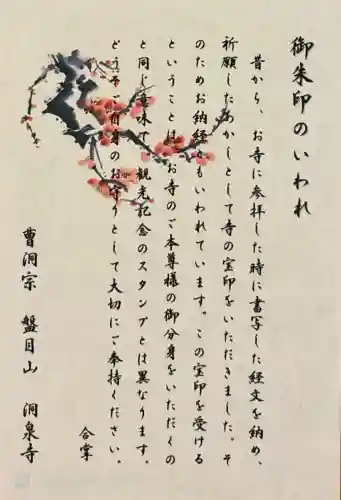 御朱印のいわれ
昔から、お寺に参拝した時に書写した経文を納め、
祈願したあかしとして寺の宝印をいただきました。そ
のためお納経ともいわれています。この宝印を受ける
ということはお寺のご本尊様の御分身をいただくの
と同じ意味で、観光記念のスタンプとは異なります。
どうぞご自身のお守りとして大切にご奉持ください。
合掌
曹洞宗 盤目山 洞泉寺